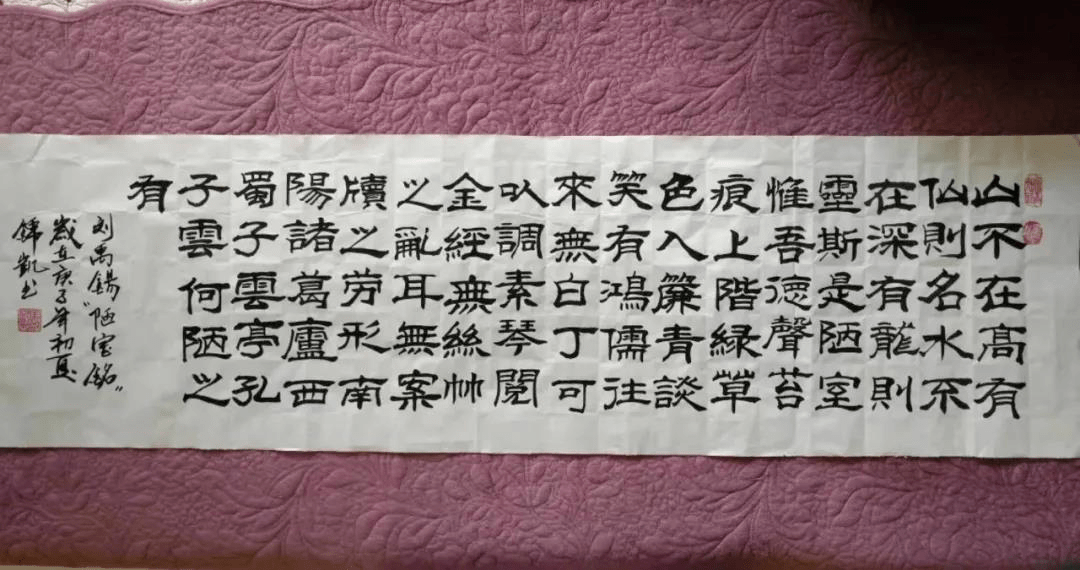 山不在高有
仙則名水不
在深有龍則
靈斯是陋室
惟吾德聲苔
痕上階緑草
色入簾青談
笑有鴻儒往
來無白丁可
以調素琴閱
金經無絲竹
之亂耳無案
牘之劳形南
陽諸葛廬西
蜀子雲亭孔
子雲何陋之
有
刘禹锡“陋室铭”
歲在庚子年初夏
锦凯书